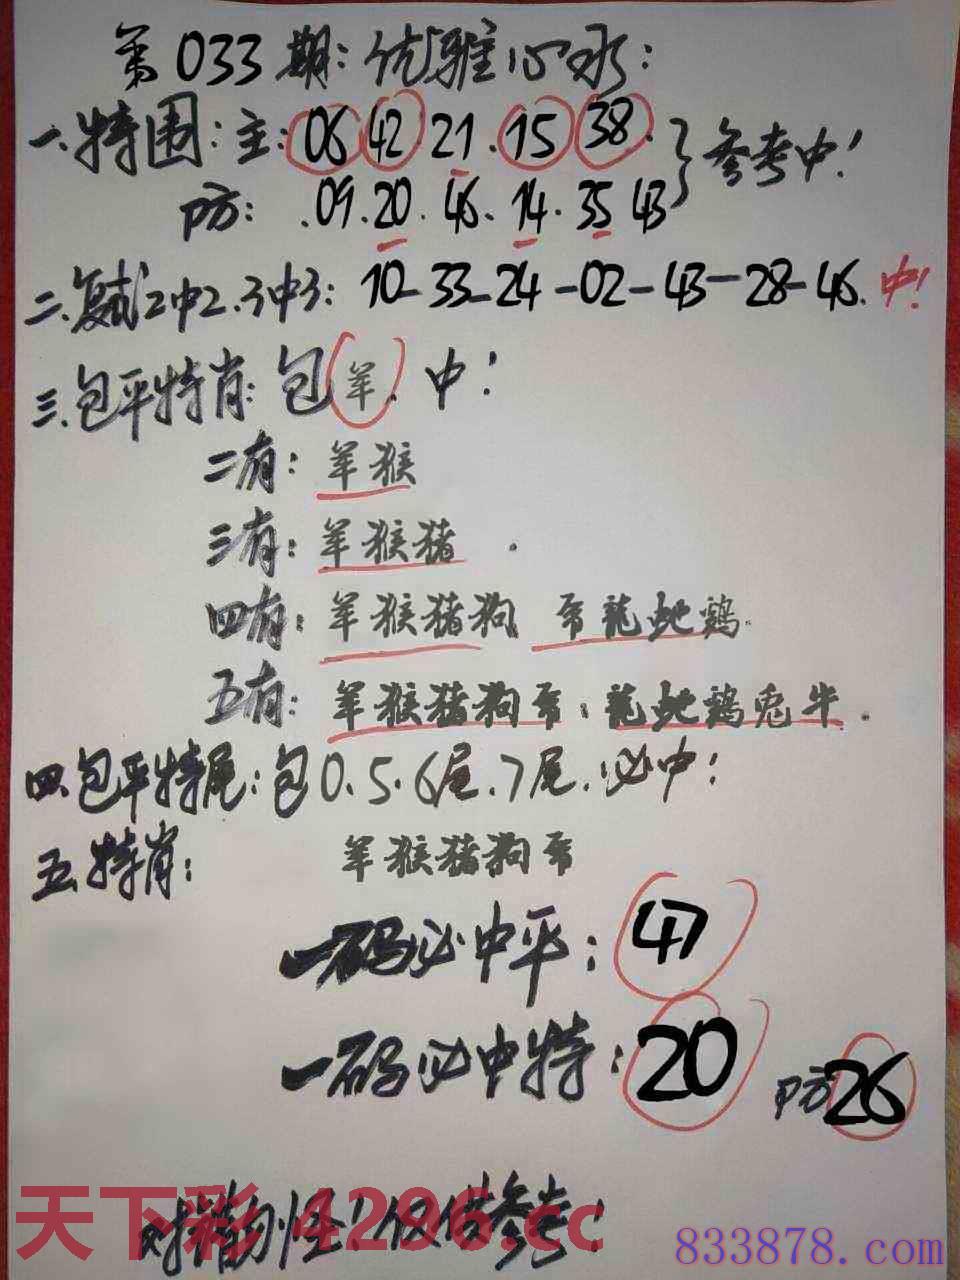 第033期:优雅心水:
一.特围:主:06 42 21.15 38. }参考中!
防:.09.20.46.14.35 43
二.复试2中2.3中3:10-33-24-02-43-28-46.中!
三.包平特肖:包羊.中!
二有:羊猴
三有:羊猴猪.
四有:羊猴猪狗 龍蛇鷄.
五有:羊猴猪狗 龍蛇鷄兔牛.
四.包平特尾:包0.5.6尾.7尾.必中!
五.特肖:羊猴猪狗
一码必中平:47
一码必中特:20 防26
对错勿怪!仅供参考!
天下彩 4296.cc
833878.com